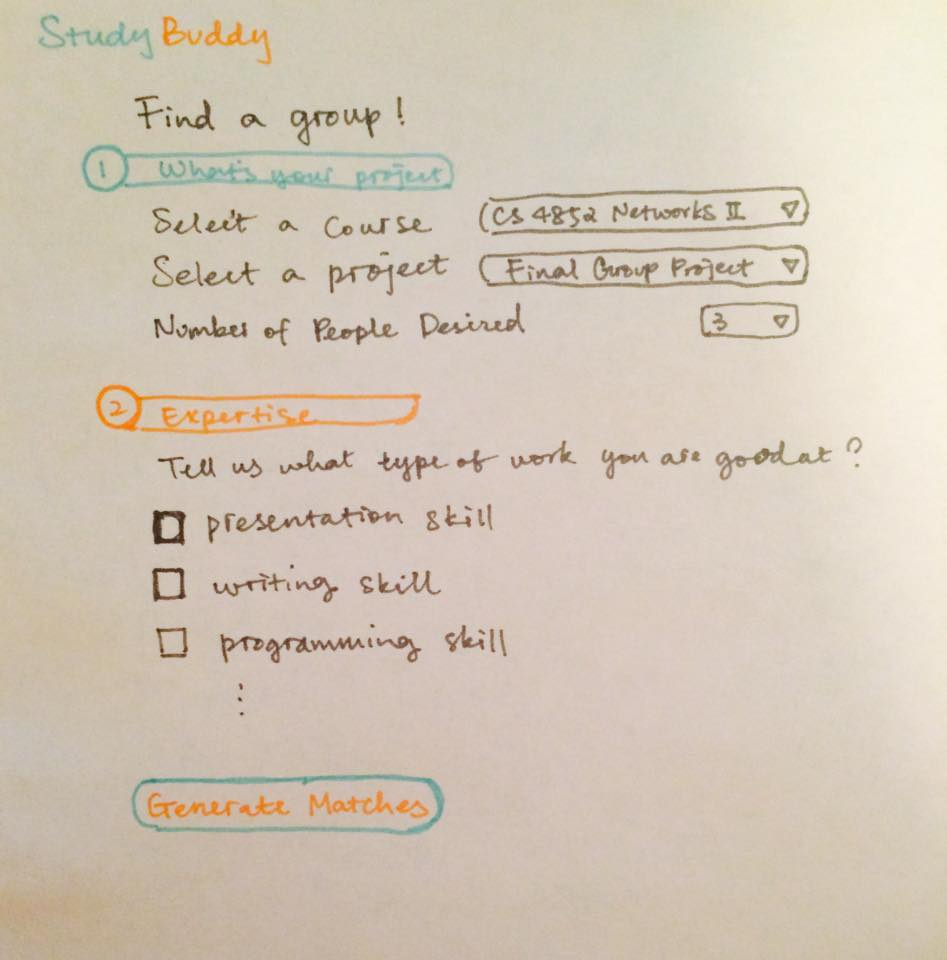 Study Buddy
Find a group!
1 What's your project
Select a Course CS 4852 Networks II
Select a project Final Group Project
Number of People Desired 3
2 Expertise
Tell us what type of work you are good at?
presentation skill
writing skill
programming skill
⋮
Generate Matches